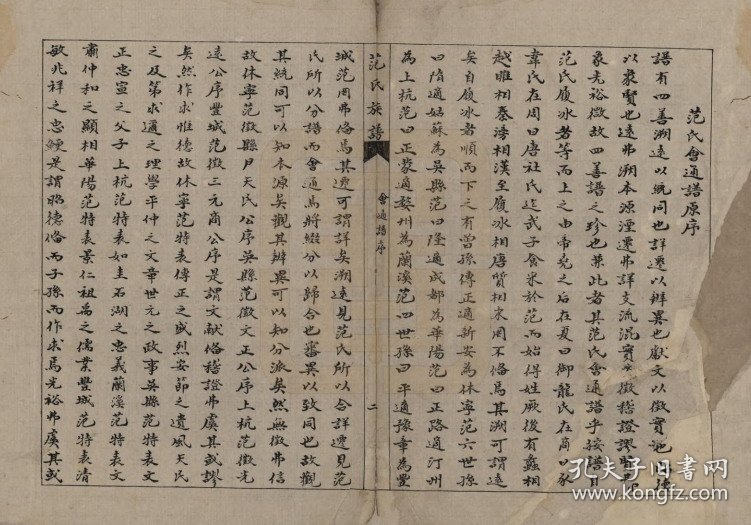 范氏會通譜原序
譜有四善溯遠以統同也詳遷以辨異也獻文以徵實也
以象賢也遠弗溯本源湮遷弗詳支流混實弗徵稽證謬
象光裕微故四善譜之珍也兼此者其范氏會通譜乎按譜自
范氏履冰者等而上之由帝堯之后在夏曰御龍氏在商曰豕
韋氏在周曰唐杜氏迄武子食采於范而始得姓厥後有蠡相
越雎相秦滂相漢至履冰相唐質相宋周不俻焉其溯可謂遠
矣自履冰者順而下之有曾孫傳正適新安為休寧范六世孫
曰隋適姑蘇為吳縣范曰隆適成都為華陽范曰正路適汀州
為上杭范曰正蒙適婺州為蘭溪范四世孫曰平適豫章為豐
范氏族譜
會通譜序
二
城范周弗俻焉其遷可謂詳矣溯遠見范氏所以合詳遷見范
氏所以分譜而會通焉將綴分以歸合也審異以致同也故觀
其統同可以知本源矣觀其辨異可以知分派矣然無徵弗信
故休寧范徵縣尹天民公序吳縣范徵文正公序上杭范徵光
遠公序豐城范徵三元商公序是謂文獻俻稽證弗虞其謬
矣然作求惟德故休寧范特表傳正之威烈安節之遺風天民
之及第求通之理學平仲之文章世元之政事吳縣范特表文
正忠宣之父子上杭范特表如圭石湖之忠義蘭溪范特表文
肅仲和之顯相華陽范特表景仁祖禹之儒業豐城范特表清
敏兆祥之忠鯁是謂昭德俻而子孫而作求焉光裕弗虞其或
孔夫子旧书网
www.kongfz.com